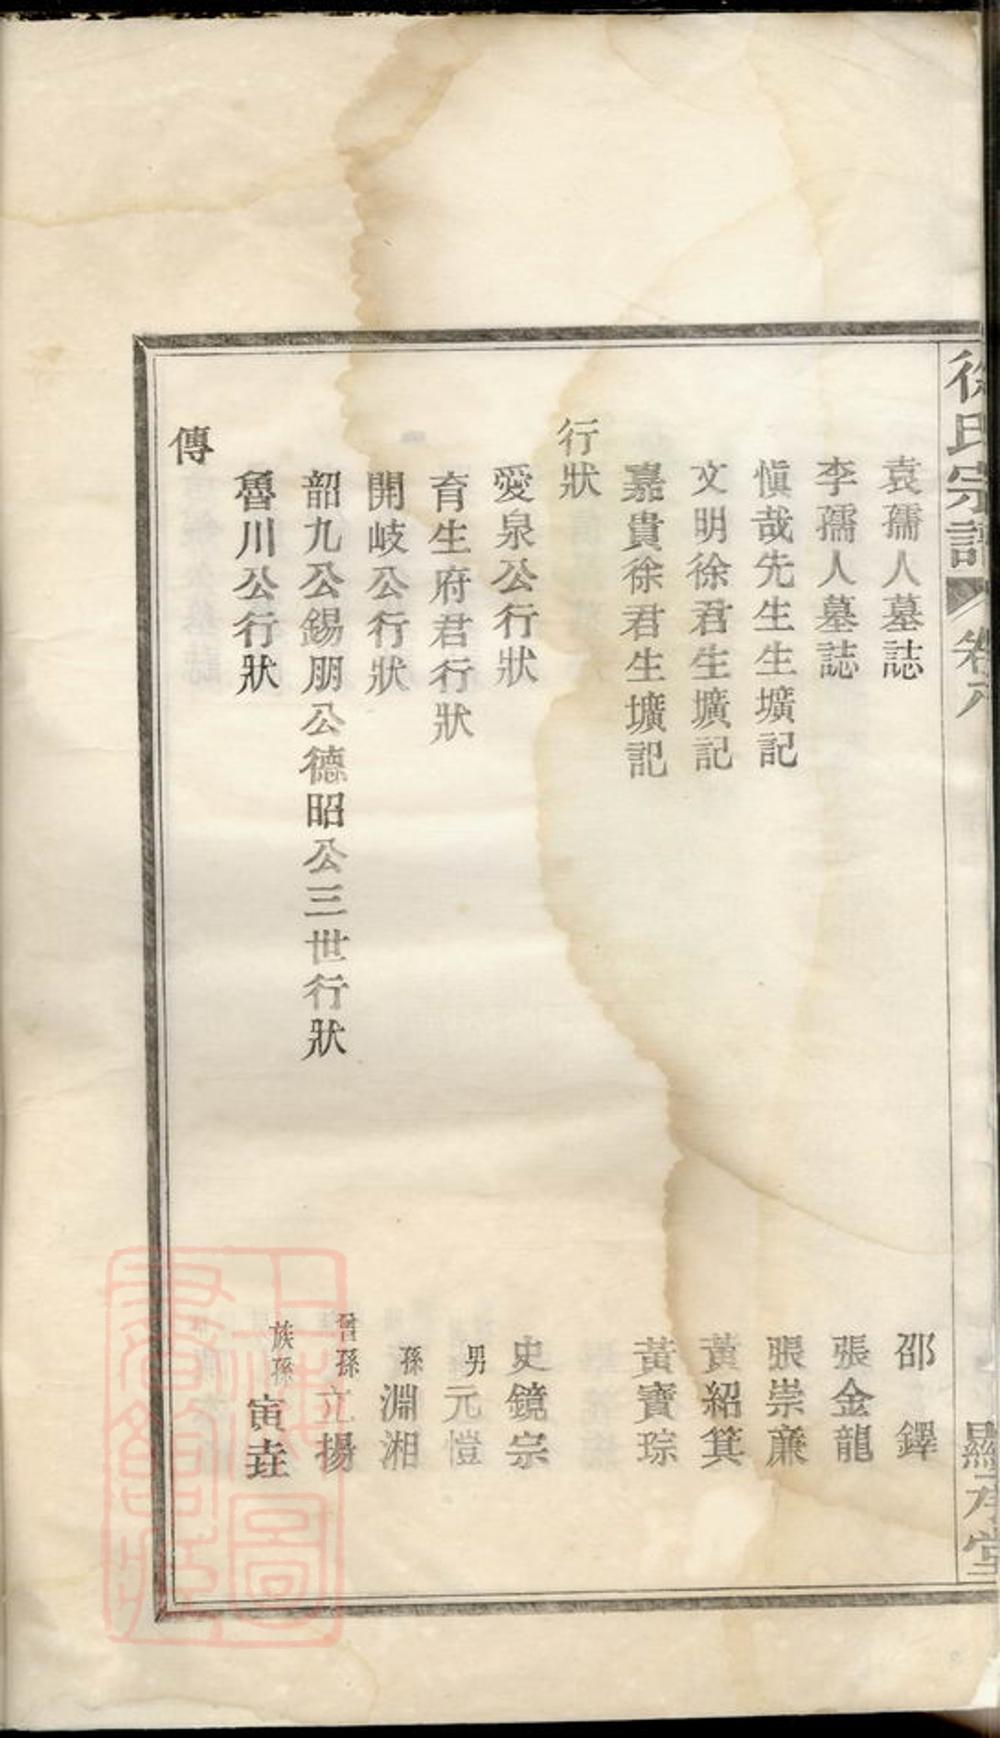 徐氏宗譜 卷六 顯承堂
袁孺人墓誌 邵鐸
李孺人墓誌 張金龍
愼哉先生生壙記 張崇亷
文明徐君生壙記 黃紹箕
嘉貴徐君生壙記 黃寶琮
行狀
愛泉公行狀 史鏡宗
育生府君行狀 男元愷
開岐公行狀 孫淵湘
韶九公錫朋公德昭公三世行狀 曾孫立揚
魯川公行狀 族孫寅垚
傳
上海圖書館藏